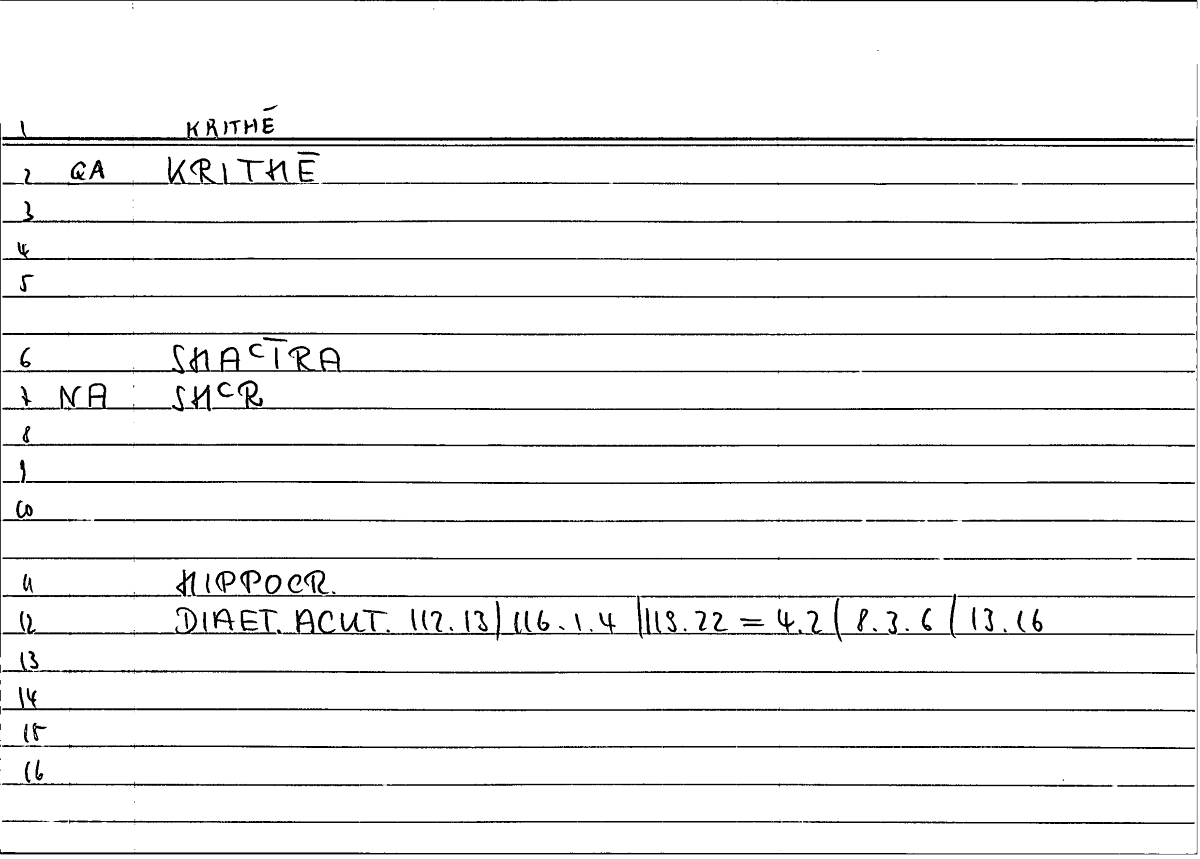 1 KRITHĒ
2 GA KRITHĒ
3
4
5
6 SHAᶜĪRA
7 NA SHᶜR
8
9
10
11 HIPPOCR.
12 DIAET. ACUT. 112.13 | 116.1.4 | 118.22 = 4.2 | 8.3.6 | 13.16
13
14
15
16